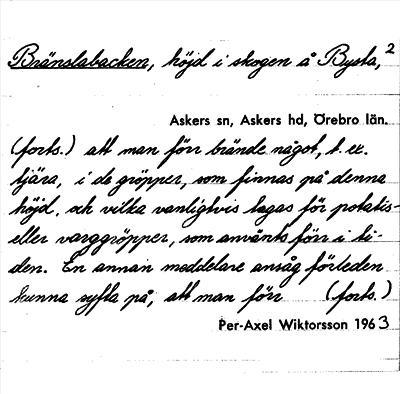 Bränslabacken, höjd i skogen å Bysta, 2
Askers sn, Askers hd, Örebro län.
(forts.) att man förr brände något, t. ex.
tjära, i de gropper, som finnas på denna
höjd, och vilka vanligtvis tagas för potatis-
eller varggröpper, som använts förr i ti-
den. En annan meddelare ansåg förleden
kunna syfta på, att man förr (forts.)
Per-Axel Wiktorsson 1963